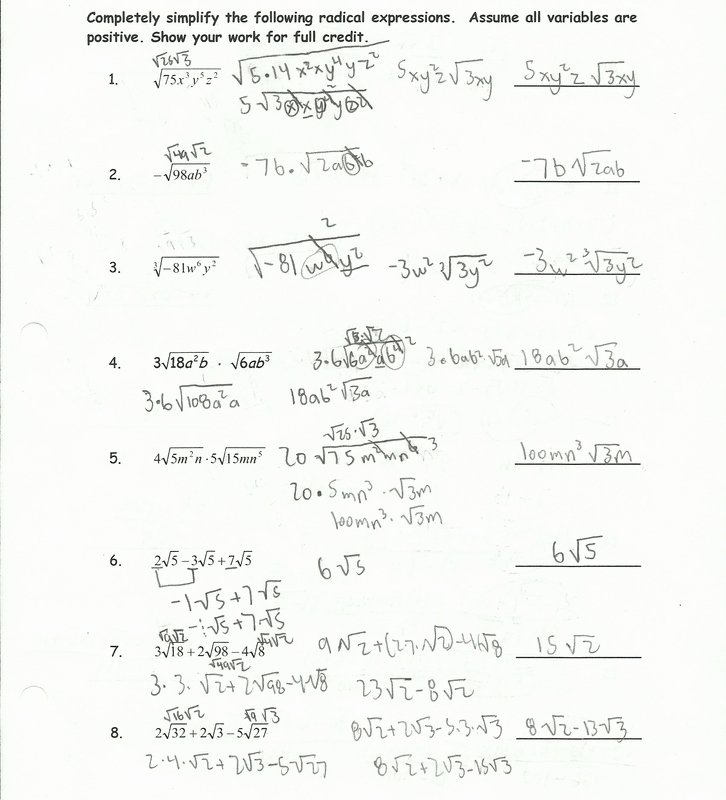 Completely simplify the following radical expressions. Assume all variables are
positive. Show your work for full credit.
√25√3
1. √75x³y⁵z² √5·14 x²xy⁴yz² 5xy²z√3xy 5xy²z √3xy
√49√2
2. -√98ab³ -7b·√2ab²b -7b√2ab
2
3. ∛-81w⁶y² -3w² ∛3y² -3w² ∛3y²
4. 3√18a²b · √6ab³ 18ab² √3a
3·6√108a²a 18ab²√3a
√25·√3
5. 4√5m²n·5√15mn⁵ 20 √75m²mn⁶ 3 100mn³ √3m
20·5mn³·√3m
100mn³·√3m
6. 2√5-3√5+7√5 6√5 6√5
-1√5+7√5
-1√5+7√5
√9√2 √4√2
7. 3√18+2√98-4√8 15√2
√49√2
3·3·√2+2√98-4√8 23√2-8√2
√16√2 √9√3
8. 2√32+2√3-5√27 8√2+2√3-5·3·√3 8√2-13√3
2·4·√2+2√3-5√27 8√2+2√3-15√3